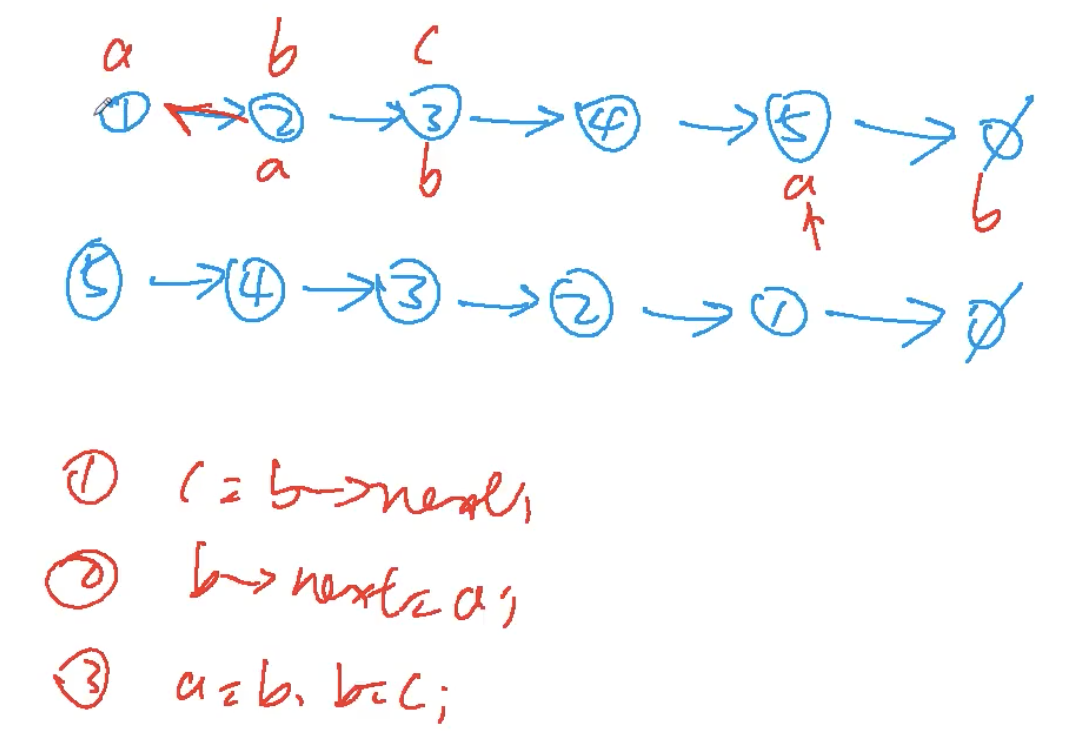 a b c
① → ② → ③ → ④ → ⑤ → ∅
a b a b
⑤ → ④ → ③ → ② → ① → ∅
① c = b->next;
② b->next = a;
③ a = b, b = c;